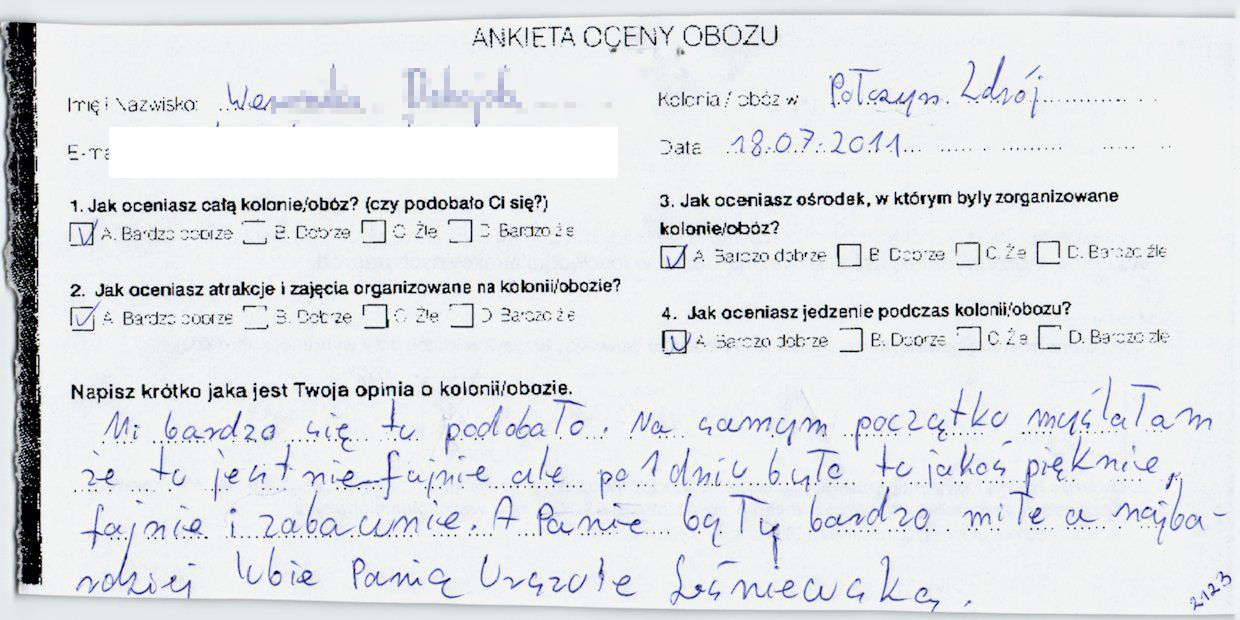 ANKIETA OCENY OBOZU
Imię i Nazwisko:
Kolonia / obóz w Połczyn Zdrój
E-ma
Data 18.07.2011
1. Jak oceniasz całą kolonie/obóz? (czy podobało Ci się?)
A. Bardzo dobrze B. Dobrze C. Źle D. Bardzo źle
2. Jak oceniasz atrakcje i zajęcia organizowane na kolonii/obozie?
A. Bardzo dobrze B. Dobrze C. Źle D. Bardzo źle
3. Jak oceniasz ośrodek, w którym byly zorganizowane
kolonie/obóz?
A. Bardzo dobrze B. Dobrze C. Źle D. Bardzo źle
4. Jak oceniasz jedzenie podczas kolonii/obozu?
A. Bardzo dobrze B. Dobrze C. Źle D. Bardzo źle
Napisz krótko jaka jest Twoja opinia o kolonii/obozie.
Mi bardzo się tu podobało. Na samym początku myślałam
że tu jest nie fajnie ale po 1 dniu było tu jakoś pięknie,
fajnie i zabawnie. A Panie były bardzo miłe a najba
rdziej lubie Panią Urszule Leśniewską.
2123